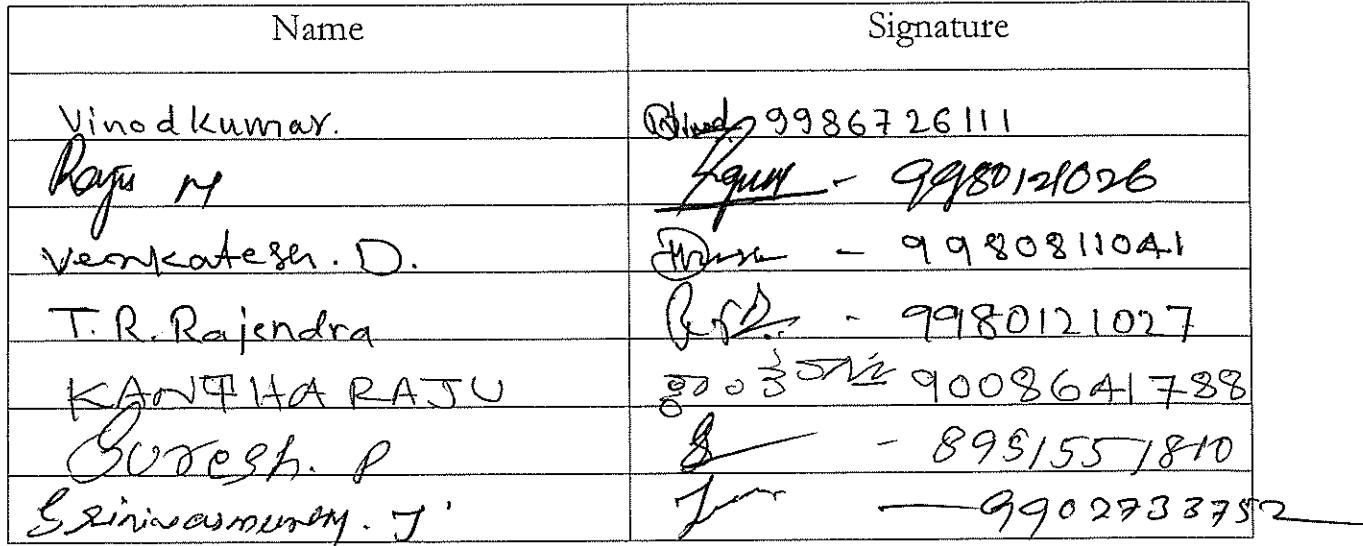 Name Signature
Vinodkumar. 9986726111
Raju M - 9980121026
Venkatesh. D. - 9980811041
T. R. Rajendra - 9980121027
KANTHARAJU 9008641788
Suresh. P - 8951551810
Srinivasmurthy. J - 9902733752